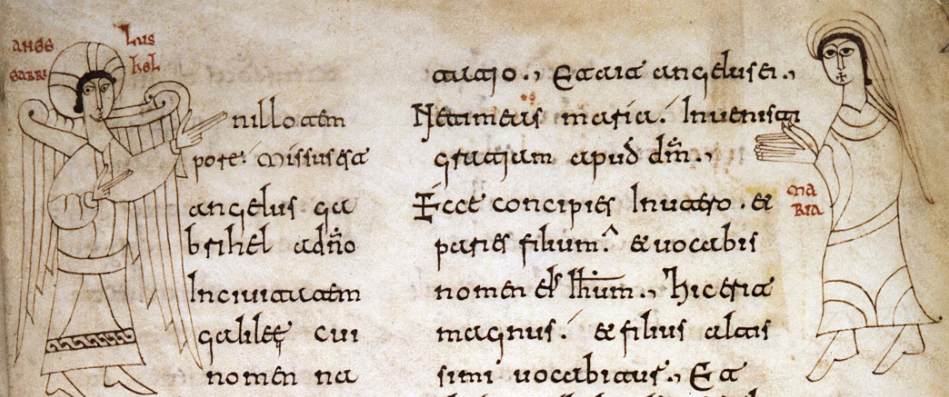 ange lus
gabri hel
n illo tem
pore. Missus est
angelus ga
brihel a dño
In ciuitatem
galileę cui
nomen na
tatio., Et ait angelus ei.,
Ne timeas maria. Inuenisti
gratiam apud dm̃.,
Ecce concipies In utero. et
paries filium. et uocabis
nomen ei͛s Ihum̅., Hic erit
magnus. et filius altis
simi uocabitur., Et
ma
ria